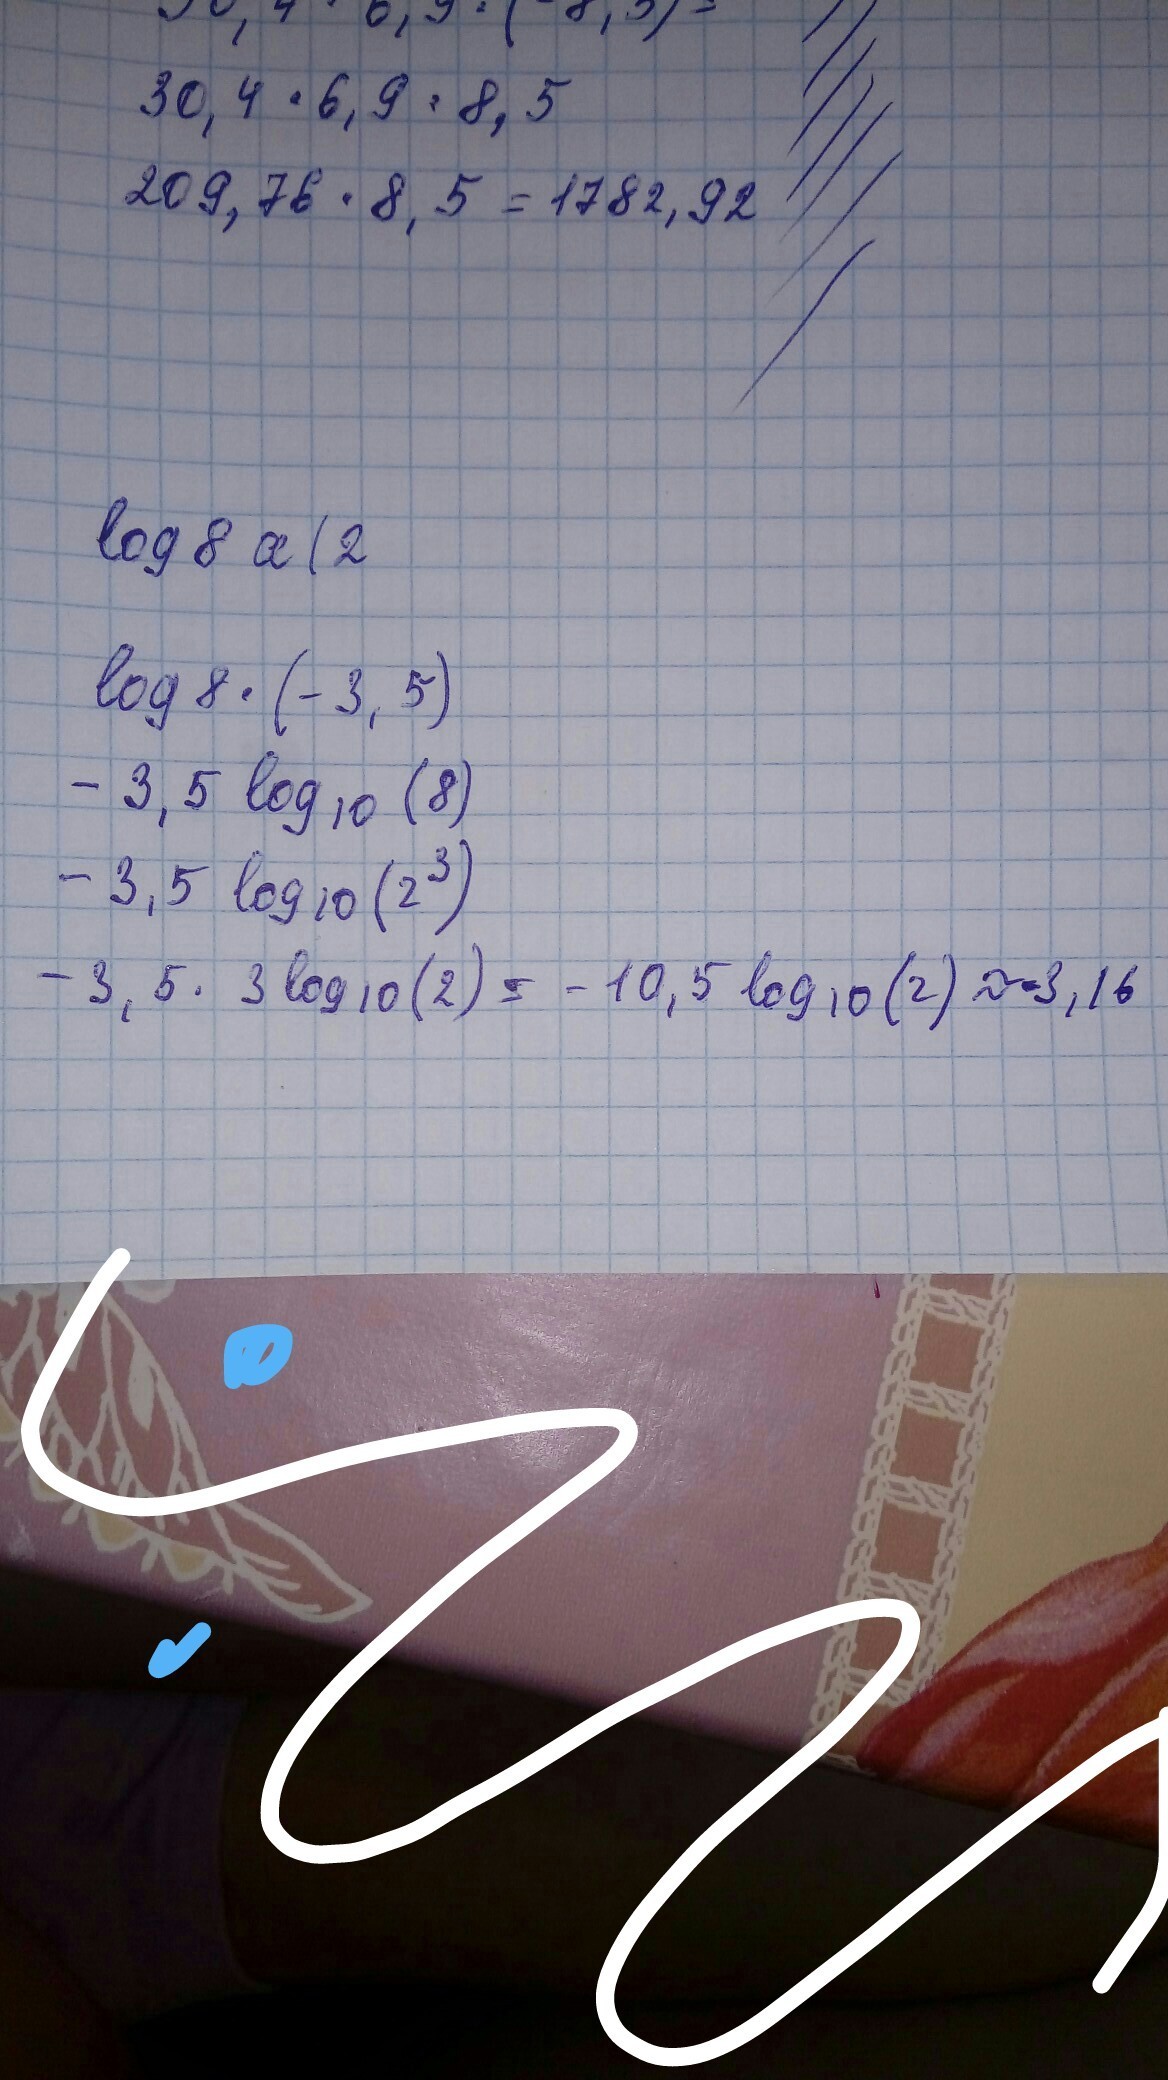 30,4 · 6,9 · (-8,5) =
30,4 · 6,9 · 8,5
209,76 · 8,5 = 1782,92
log 8 a (2
log 8 · (-3,5)
-3,5 log₁₀ (8)
-3,5 log₁₀ (2³)
-3,5 · 3 log₁₀ (2) = -10,5 log₁₀ (2) ≈ -3,16